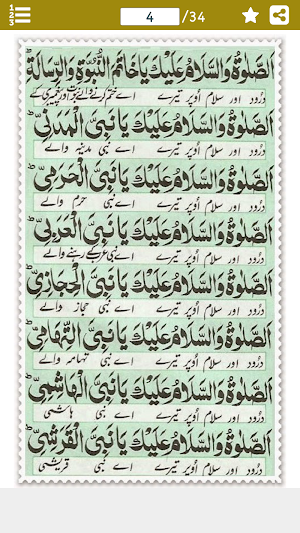 4 /34
الصلوة والسلام عليك يا خاتم النبوة والرسالة
درود اور سلام اوپر تیرے اے ختم کرنے والے نبوت اور پیغمبری کے
الصلوة والسلام عليك يا نبي المدني
درود اور سلام اوپر تیرے اے نبی مدینہ والے
الصلوة والسلام عليك يا نبي الحرمي
درود اور سلام اوپر تیرے اے نبی حرم والے
الصلوة والسلام عليك يا نبي العربي
درود اور سلام اوپر تیرے اے نبی عرب کے رہنے والے
الصلوة والسلام عليك يا نبي الحجازي
درود اور سلام اوپر تیرے اے نبی حجاز والے
الصلوة والسلام عليك يا نبي التهامي
درود اور سلام اوپر تیرے اے نبی تہامہ والے
الصلوة والسلام عليك يا نبي الهاشمي
درود اور سلام اوپر تیرے اے نبی ہاشمی
الصلوة والسلام عليك يا نبي القرشي
درود اور سلام اوپر تیرے اے نبی قریشی